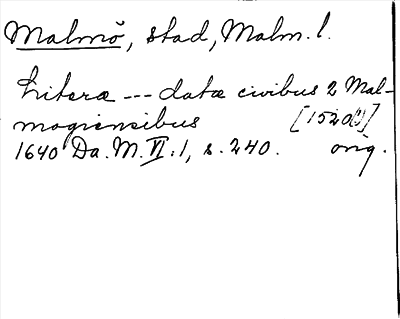 Malmö, stad, Malm. l.
Literæ --- datæ civibus 2 Mal-
mogiensibus [1520(?)]
1640 Da. M. VI:1, s. 240. orig.